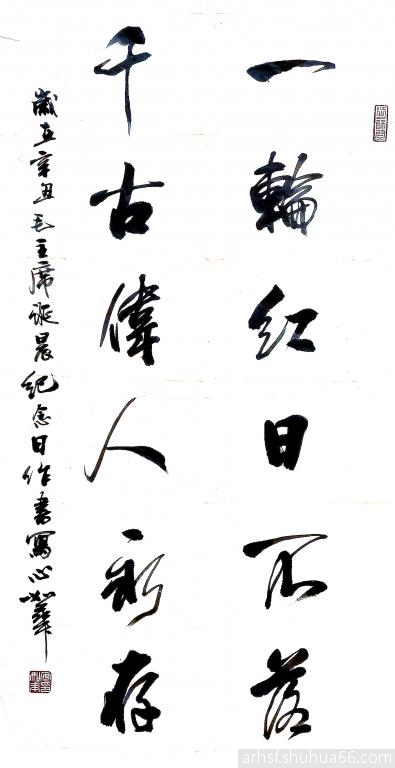 一輪紅日不落
千古偉人永存
歲在辛丑毛主席诞晨纪念日作書寫心
arhsf.shuhua66.com